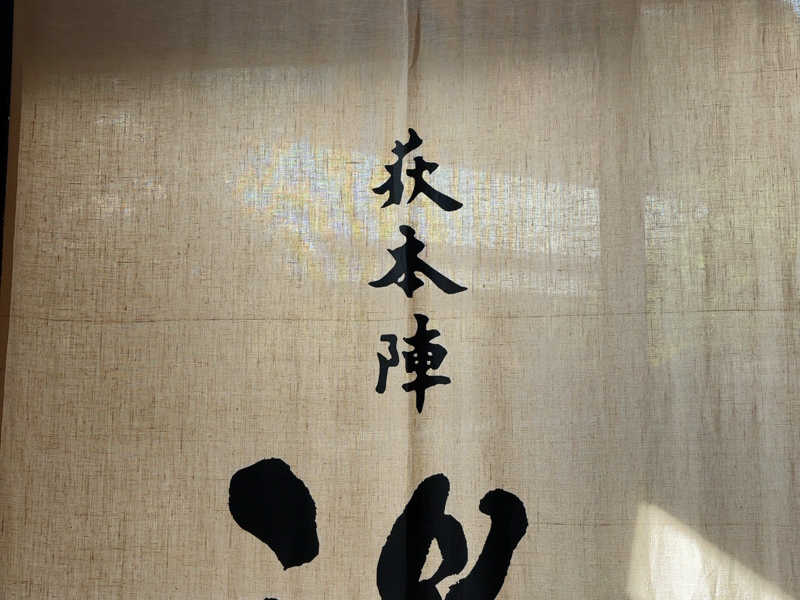 萩本陣